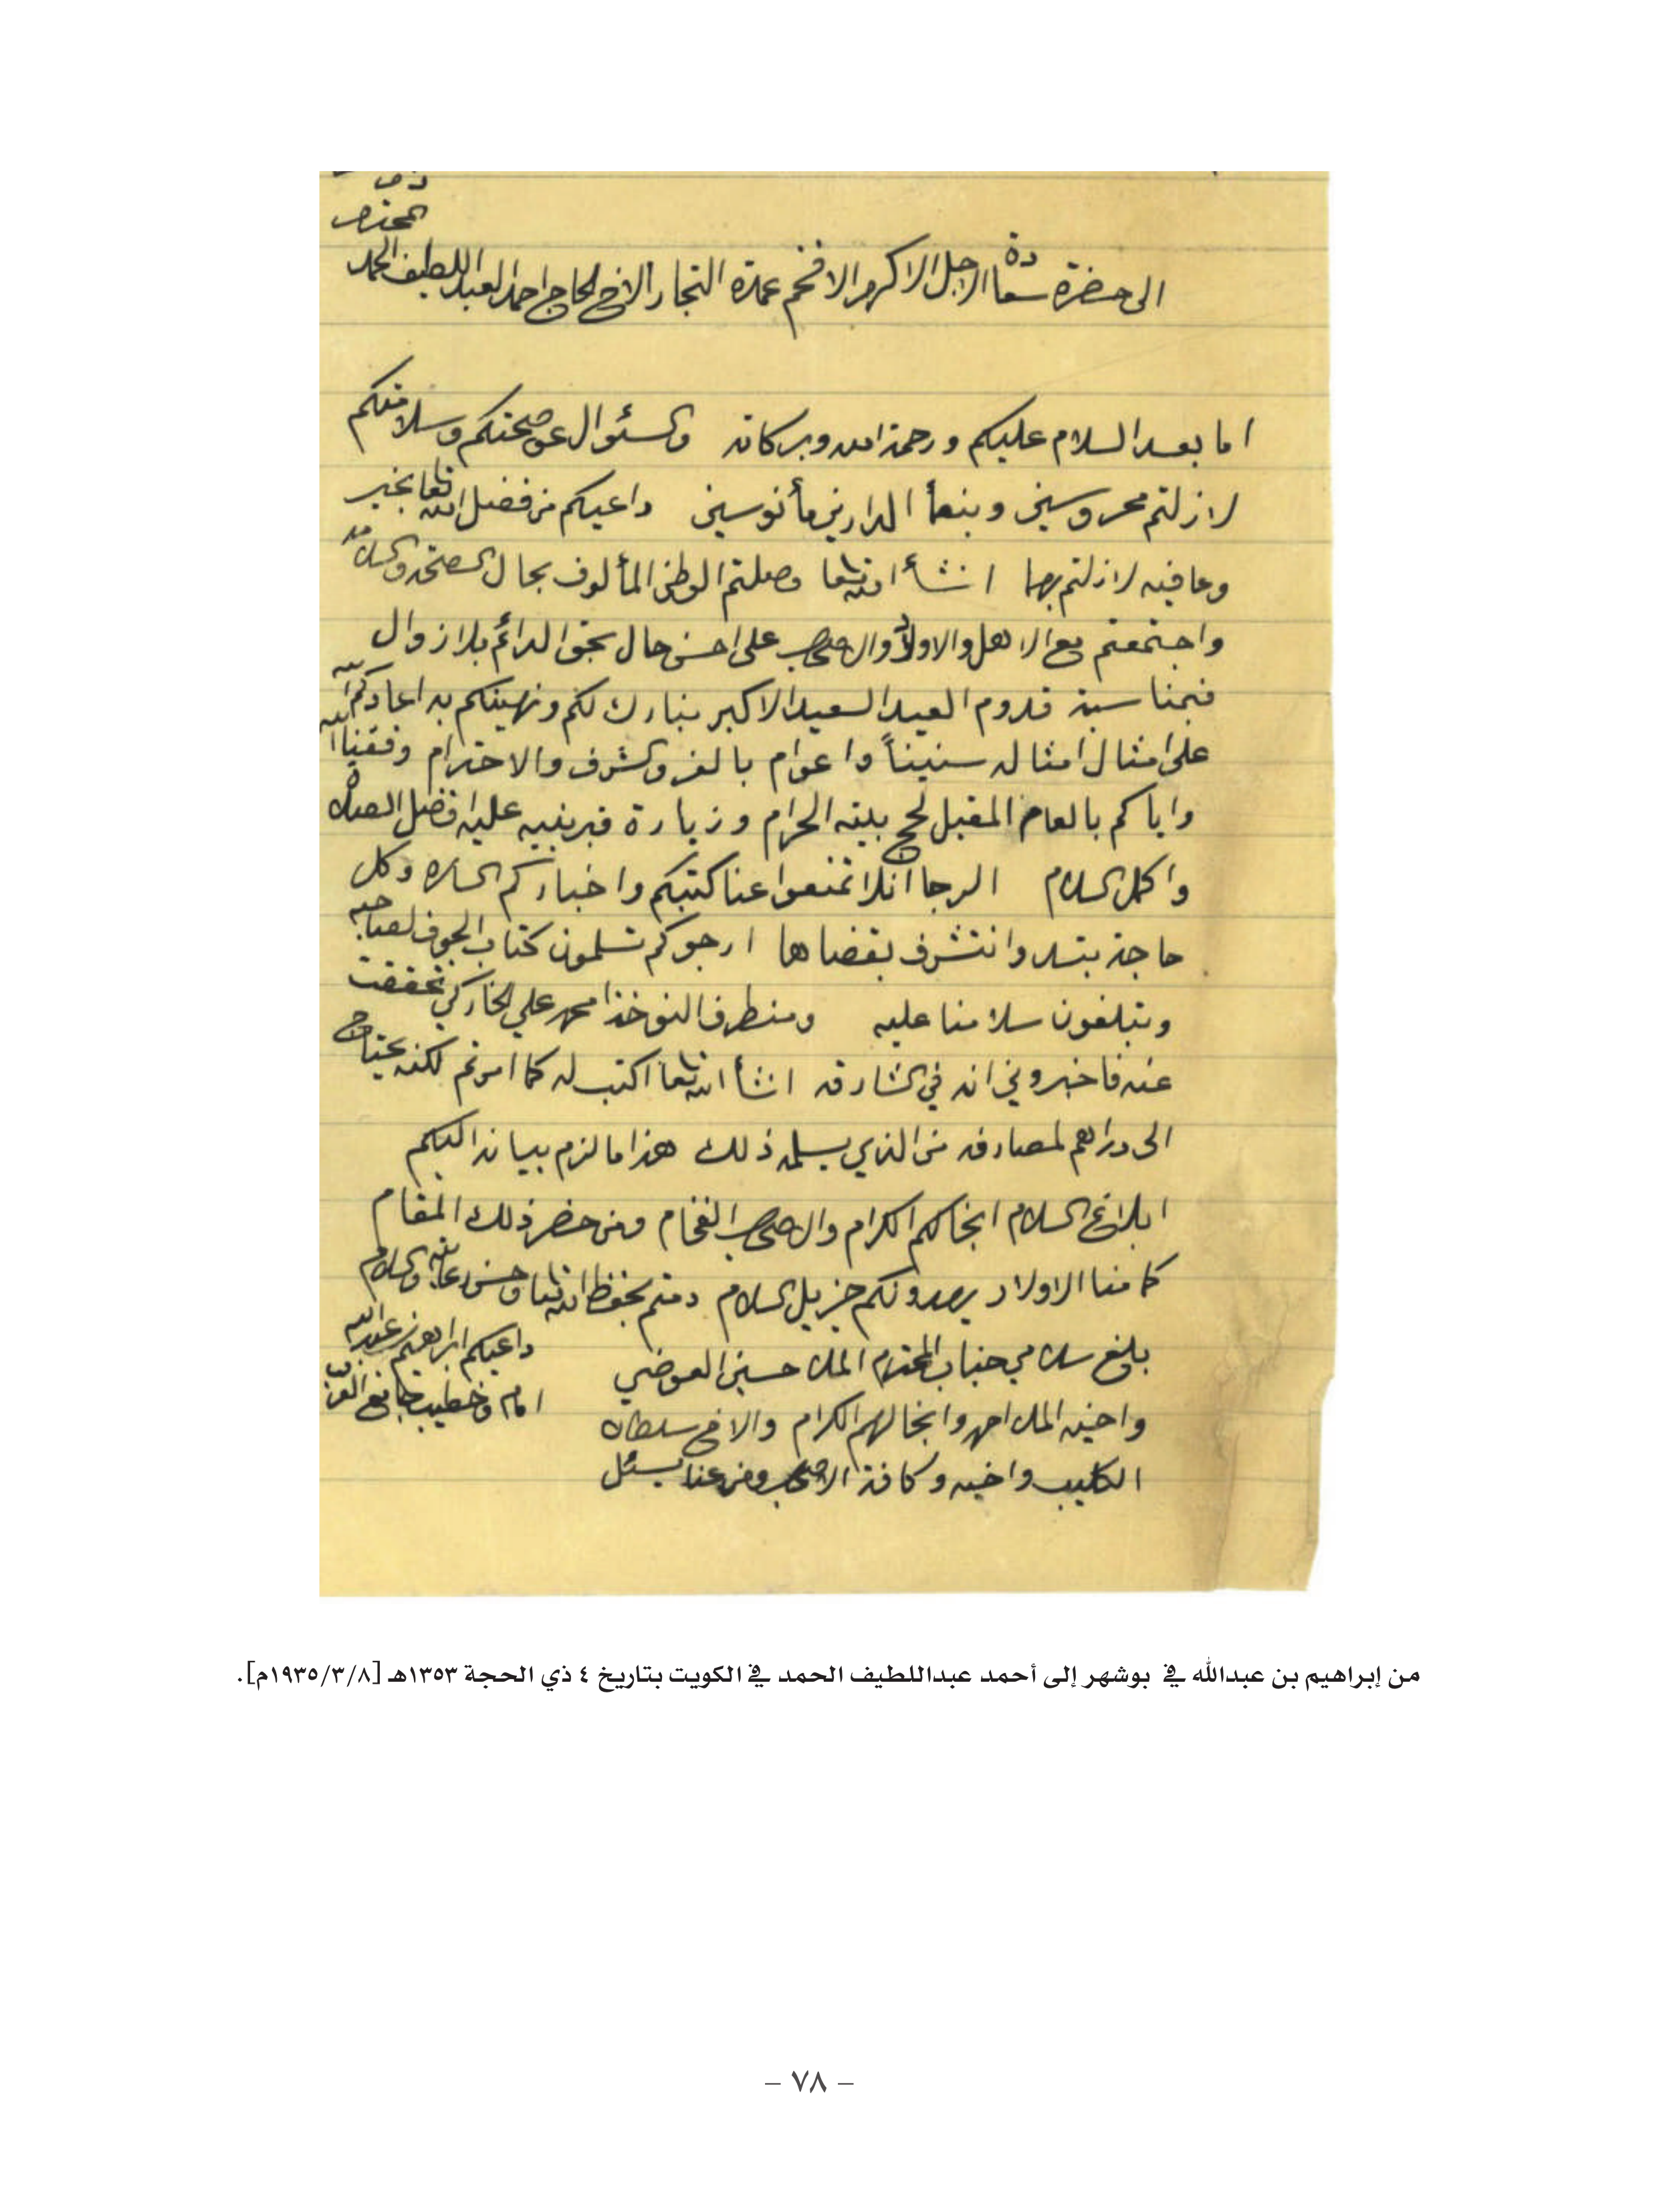 المحترم
الى حضرة سعادة الاجل الاكرم الافخم عمدة التجار الاخ الحاج احمد العبد اللطيف الحمد
اما بعد السلام عليكم ورحمة الله وبركاته والسئوال عن صحتكم وسلامتكم
لازلتم محروسين وبنعمأ الدارين مأنوسين داعيكم من فضل الله تعا بخير
وعافيه لازلتم بهما انشأ الله تعا وصلتم الوطن المألوف بحال الصحة والسلامه
واجتمعتم مع الاهل والاولاد والاصحاب على احسن حال بحق الدائم بلا زوال
فبمناسبة قدوم العيد السعيد الاكبر نبارك لكم ونهنيكم به اعادكم الله
على امثال امثاله سنيناً واعوام بالعز والشرف والاحترام وفقنا الله
واياكم بالعام المقبل لحج بيته الحرام وزيارة قبر نبيه عليه افضل الصلاة
واكمل السلام الرجا ان لا تمنعوا عنا كتبكم واخباركم الساره وكل
حاجة بتبدوا نتشرف بقضاها ارجوكم تسلمون كتاب الجوف لصاحبه
وتبلغون سلامنا عليه ومنطرف النوخذا محمد علي الخاركي تحققت
عنه فاخبروني انه في الشارقه انشأ الله تعا اكتب له كما امرتم لكنه يحتاج
الى دراهم لمصارفه من الذي يسلمه ذلك هذا ما لزم بيانه اليكم
ابلاغ السلام انجالكم الكرام والاصحاب الفخام ومن حضر ذلك المقام
كما منا الاولاد يهدونكم جزيل السلام دمتم بحفظ الله تعا وحسن رعايته والسلام
داعيكم ابراهيم بن عبدالله
امام وخطيب جامع
بلغ سلامي جناب المحترم الملا حسين العوضي
واخيه الملا احمد وانجالهم الكرام والاخ سلطان
الكليب واخيه وكافة الاصحاب ومن عنا يسئل
من إبراهيم بن عبدالله في بوشهر إلى أحمد عبداللطيف الحمد في الكويت بتاريخ ٤ ذي الحجة ١٣٥٣هـ [١٩٣٥/٣/٨م].
– ٧٨ –